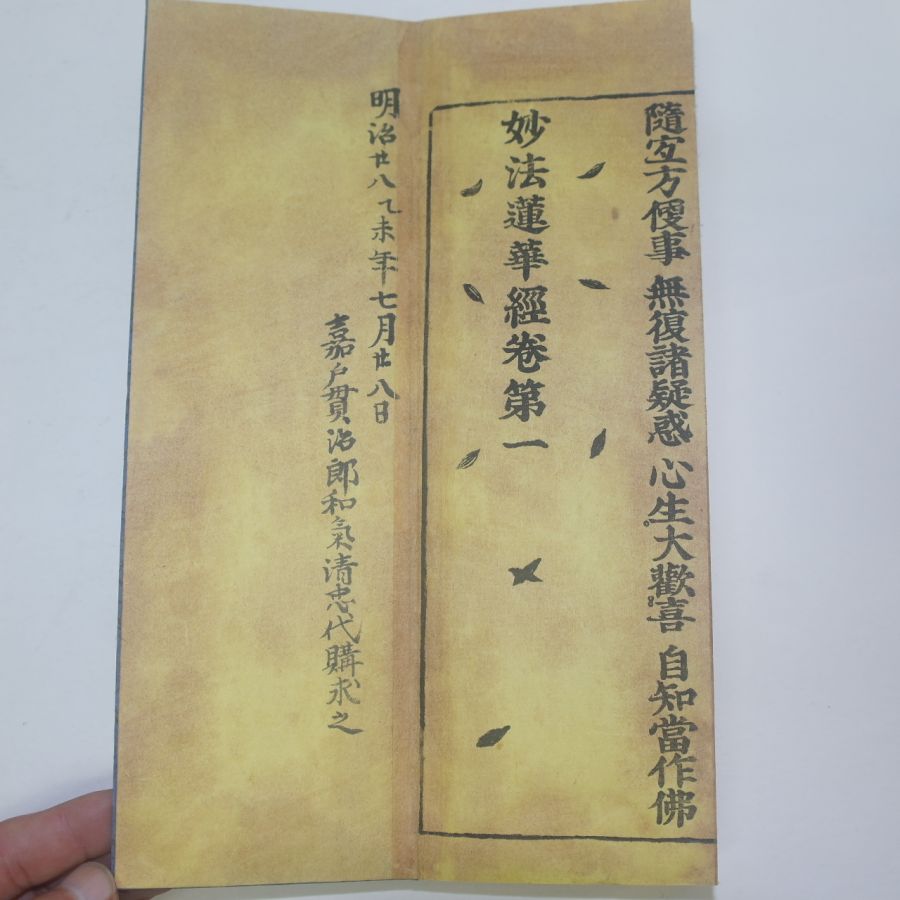 隨宜方便事 無復諸疑惑 心生大歡喜 自知當作佛
妙法蓮華經卷第一
明治廿八乙未年七月廿八日
嘉戸貫治郎和氣清忠代購求之